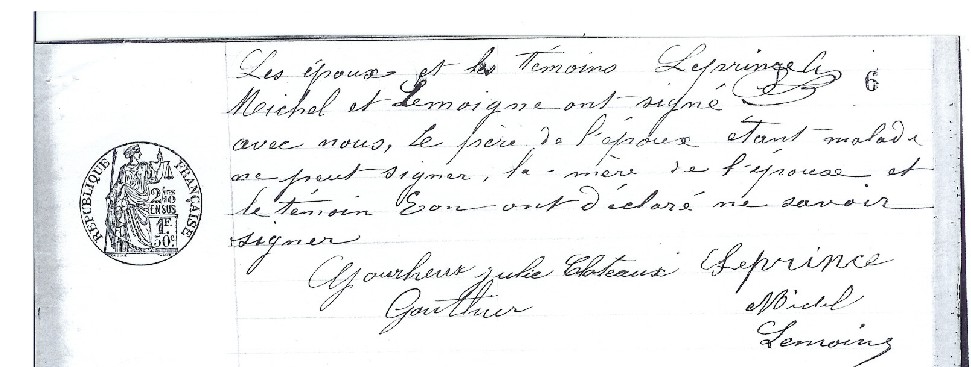 Les époux et les témoins Leprince 6
Michel et Lemoigne ont signé
avec nous, le père de l'époux étant malade
ne peut signer, la mère de l'épouse et
le témoin Eon ont déclaré ne savoir
signer
RÉPUBLIQUE FRANÇAISE
2 DÉCIMES
EN SUS
1F.
50c.
Julie Cloteaux Leprince
Gauthier Michel
Lemoine